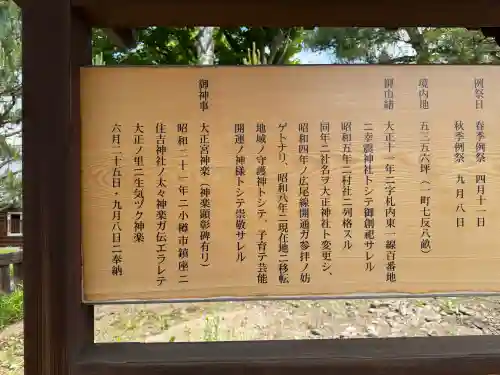 例祭日 春季例祭 四月十一日
秋季例祭 九月八日
境内地 五三五六坪(一町七反八畝)
御由緒 大正十一年二字札内東一線百番地
ニ幸震神社トシテ御創祀サレル
昭和五年二村社ニ列格スル
同年ニ社名ヲ大正神社ト変更シ、
昭和四年ノ広尾線開通ガ参拝ノ妨
ゲトナリ、昭和八年二現在地ニ移転
地域ノ守護神トシテ、子育テ芸能
開運ノ神様トシテ崇敬サレル
御神事 大正宮神楽(神楽顕彰碑有リ)
昭和二十一年二小樽市鎮座ニ
住吉神社ノ太々神楽ガ伝エラレテ
大正ノ里ニ生気ヅク神楽
六月二十五日・九月八日ニ奉納